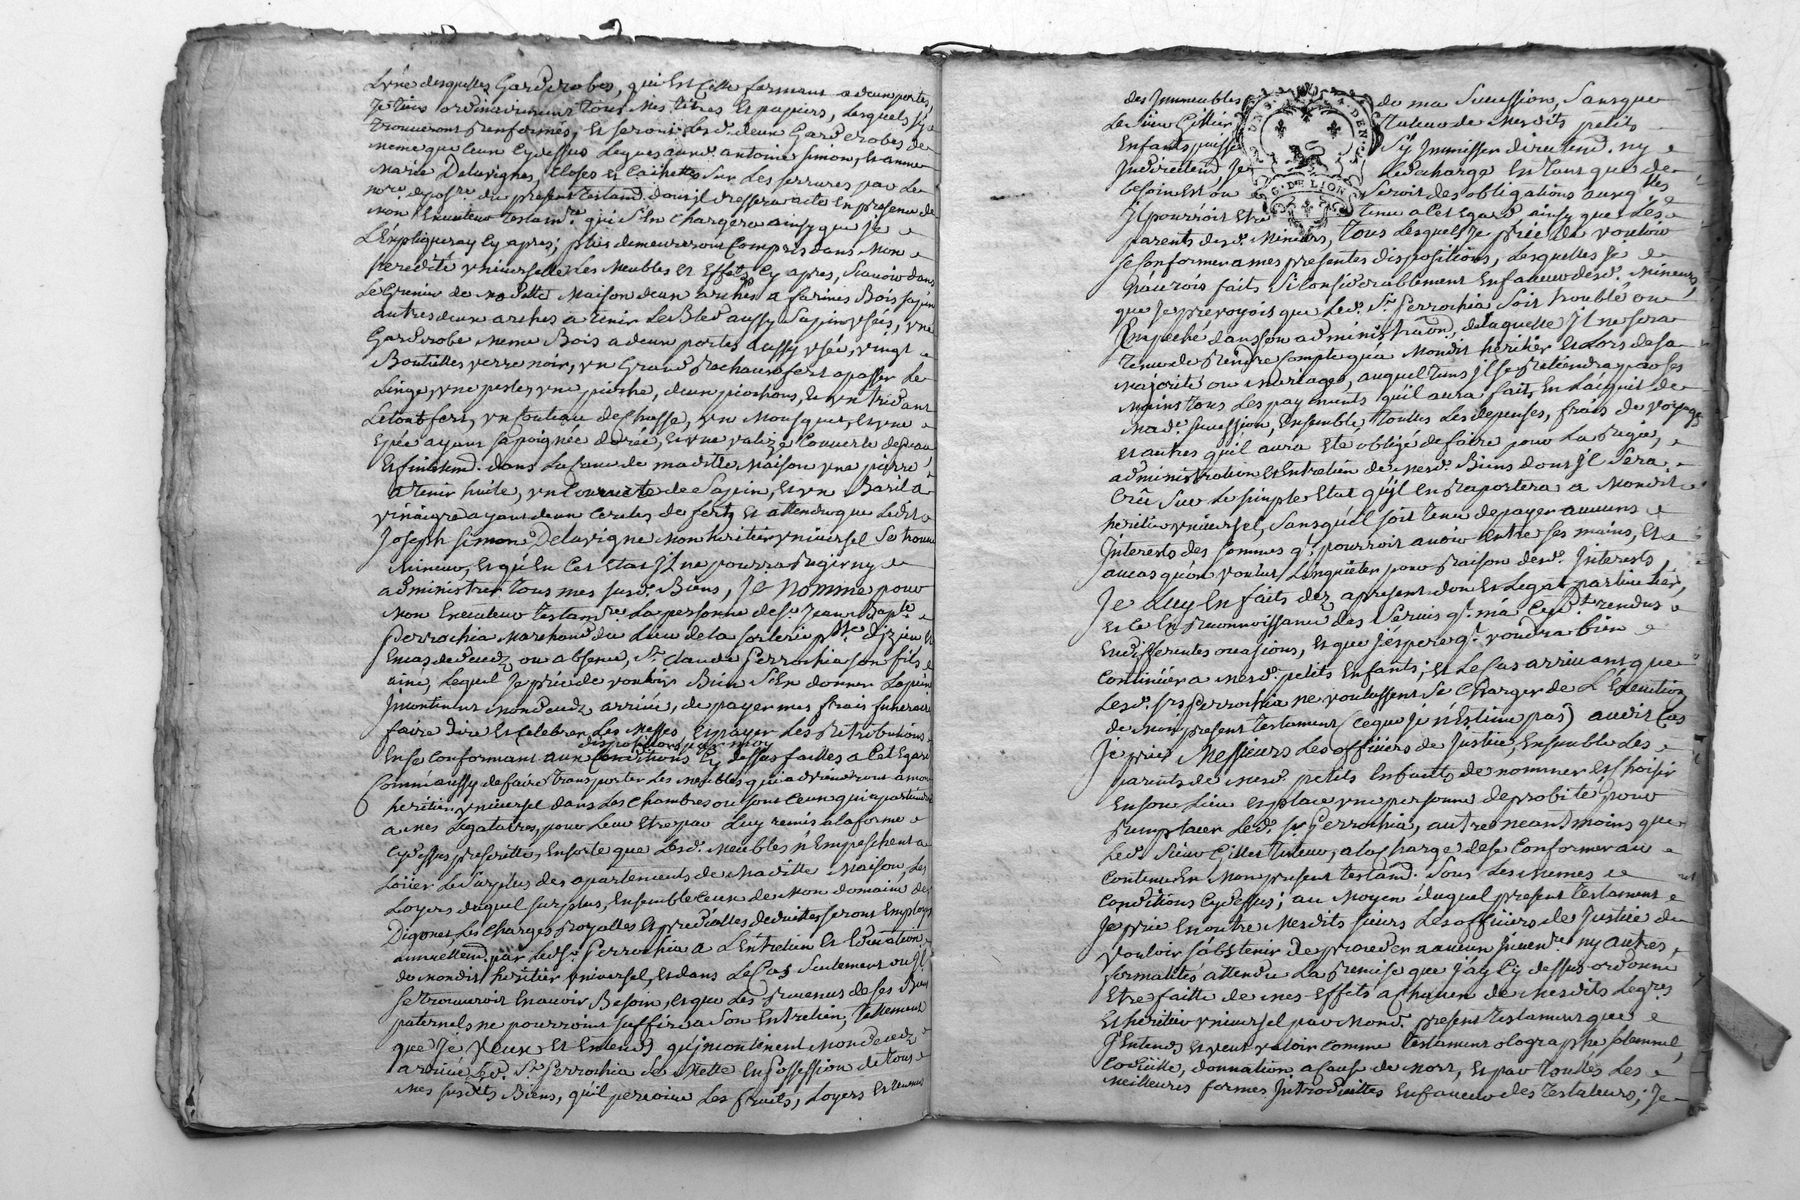 L'une desquelles Garderobes, qui est celle fermant a deux portes,
Je tiens ordinairement tous mes titres et papiers, lesquels s'y
trouveront renfermés, et seront lesd. deux Garderobes de
meme que ceux cydessus legués auxd. antoine simon, et anne
Marie Delavignes, closes et cachettés sur les serrures par le
no.re dépos.re du present testamt. dont il dressera acte en presence de
mon Executeur testam.re qui s'en chargera ainsy que je
L'expliqueray cy apres; plus demeureront compris dans mon
heredité universelle les Meubles et Effets cy apres, scavoir dans
Le Grenier de ma ditte Maison deux arches a farines Bois sapin
autres deux arches a tenir le Bled aussy sapin usés, une
Garderobe meme Bois a deux portes aussy usée, vingt
Bouteilles verre noir, un Grand rechaud fert a passer le
Linge, une pesle, une pioche, deux piochons, et un tridant
Le tout fert, un Couteau de Chasse, un Mousquet, et une
Epée ayant sa poignée dorée, et une valize couverte de peau
Et finalemt. dans la Cave de maditte Maison une pierre
a tenir huile, un de Sapin, et un Baril a
vinaigre ayant deux cercles de fert; et attendu que ledit
Joseph simon Delavigne mon heritier universel se trouve
Mineur, et qu'en cet Etat Il ne pourra Regir ny
administrer tous mes susd. Biens, Je Nomme pour
Mon Executeur testam.re La personne de s.r Jean Bapte.
Perrochia Marchand du Lieu de la sorlerie p.sse dizieu et
En cas de decedz ou absence, s.r Claude Perrochia son fils
ainé, Lequel Je prie de vouloir Bien s'en donner la peine
Jncontinent mond. decedz arrivé, de payer mes frais funeraires
faire dire Et Celebrer Les Messes, Et payer Les Retributions
dispositions par moy
En se conformant aux Conditions Cy dessus faittes a Cet Egard
Comm'aussy de faire transporter Les Meubles qui adviendront a mon
heritier universel dans Les Chambres ou sont Ceux qui apartiendront
a mes Legataires, pour leur Etre par Luy remis a la forme
Cydessus prescritte, En sorte que Lesd. Meubles n'Empeschent a
Loüer Le surplus des apartements de Maditte Maison, Les
Loyers duquel surplus, Ensemble Ceux de Mon domaine de
Digonet Les Charges Royalles Et prediales deduittes seront Employés
annuellemt. par Led. S.r Perrochia a L'Entretien Et Education
de Mondit heritier universel, Et dans le Cas seulement ou Jl
se trouveroit En avoir Besoin, et que Les Revenus de ses Biens
paternels ne pourroint suffire a son Entretien, Tellement
que Je Veux Et Entends qu'jncontinent Mon decedz
arrivé Led. S.r Perrochia se Mette En possession de tous
Mes susdits Biens, qu'il percoive Les fruits, Loyers et revenus
des Jmmeubles de ma Succession, sans que
Le sieur Gillier Tuteur de Mesdits petits
Enfants puisse s'y Jmmiscer directemt. ny
Jndirectemt. Je Le decharge En tant que de
besoin Est ou seroit des obligations auxqlles
Jl pourroit Etre tenu a Cet Egard ainsy que Les
parents desd. Mineurs, Tous lesquels Je prie de vouloir
se conformer a mes presentes dispositions, Lesquelles Je
n'aurois faits si Considerablement En faveur desd. Mineurs,
que Je prevoyois que Led. S.r Perrochia soit troublé ou
Empeché dans son administraon, de laquelle Jl ne sera
tenu de Rendre Compte qu'a Mondit heritier Et Lors de sa
Majorité ou Mariage, auquel tems Jl se Retiendra par ses
Mains tous Les payements qu'il aura faits En L'acquit de
Mad. succession, Ensemble toutes Les depenses, frais de voyages
Et autres qu'il aura Eté obligé de faire pour La Regie,
administration Et Entretien de Mesd. Biens dont Jl sera
Crû sur Le simple Etat qu'il En Raportera a Mondit
heritier universel, sans qu'il soit tenu de payer aucuns
Jnterests des sommes q.l pourroit avoir Entre ses mains, Et
au cas qu'on voulut L'inquiéter pour Raison desd. Jnterests,
Je Luy En faits dez apresent don Et Legat particulier,
Et Ce En Reconnoissance des services q.l m'a Cyd.t rendus
En differentes occasions, Et que J'éspere q.l voudra bien
Continüer a Mesd. petits Enfants; Et Le Cas arrivant que
Lesd. Srs Perrochia ne voulussent se Charger de L'Execution
de Mon present testament (Ce que Je n'Estime pas) audit Cas
Je prie Messieurs Les officiers de Justice, Ensemble Les
parents de Mesd. petits Enfants de nommer Et Choisir
En son Lieu Et place une personne de probité pour
Remplacer Led. S.r Perrochia, autre neantmoins que
Led. sieur Gillier Tuteur, a la charge de se Conformer au
Contenu En Mon present testamt. sous Les memes
Conditions Cydessus; au Moyen duquel present testament
Je prie En outre Mesdits sieurs Les officiers de Justice de
vouloir s'abstenir de proceder a aucun Jnvend.re ny autres
formalités attendu La Remise que J'ay Cy dessus ordonné
Etre faitte de mes Effets a Chacun de Mesdits Legres
Et heritier universel par Mond. present testament que
J'Entends Et veut valoir comme testament olographe solemnel,
Codicille, donnation a Cause de Mort, Et par toutes Les
Meilleures formes Jntroduittes En faveur des testateurs; Je
G. DE LION